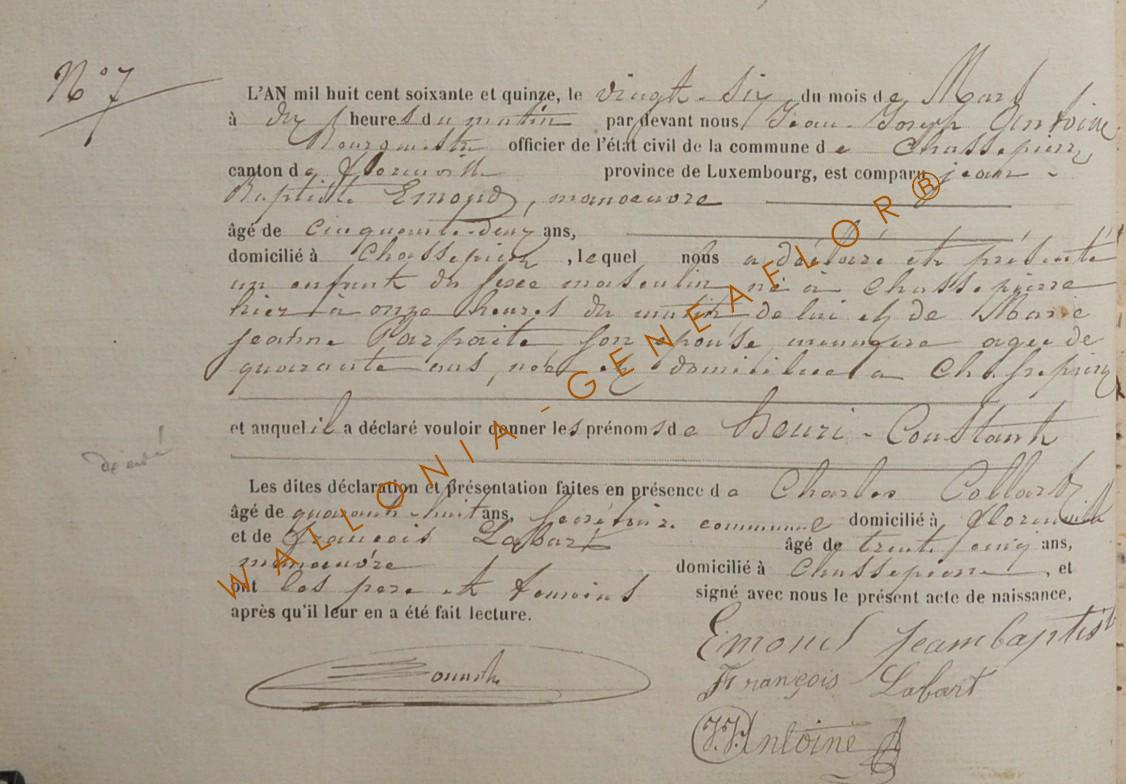 N° 7
L'AN mil huit cent soixante et quinze, le vingt-six du mois de Mars
à dix heures du matin par devant nous Jean-Joseph Antoine
Bourgmestre officier de l'état civil de la commune de Chassepierre
canton de Florenville province de Luxembourg, est comparu jean-
Baptiste Emond, manoeuvre
âgé de cinquante-deux ans,
domicilié à Chassepierre, lequel nous a déclaré et présenté
un enfant du sexe masculin né à Chassepierre
hier à onze heures du matin de lui et de Marie
jeanne Parfaite son épouse, menagère agée de
quarante ans, née et domiciliée à Chassepierre
et auquel il a déclaré vouloir donner les prénoms de Henri-Constant
Les dites déclaration et présentation faites en présence de Charles Collard
âgé de quarante-huit ans, secrétaire communal domicilié à florenville
et de François Labart âgé de trente cinq ans,
manoeuvre domicilié à Chassepierre, et
ont les pere et temoins signé avec nous le présent acte de naissance,
après qu'il leur en a été fait lecture.
Emond jeambaptist
François Labart
J.J. Antoine
WALLONIA-GENEAFLOR®